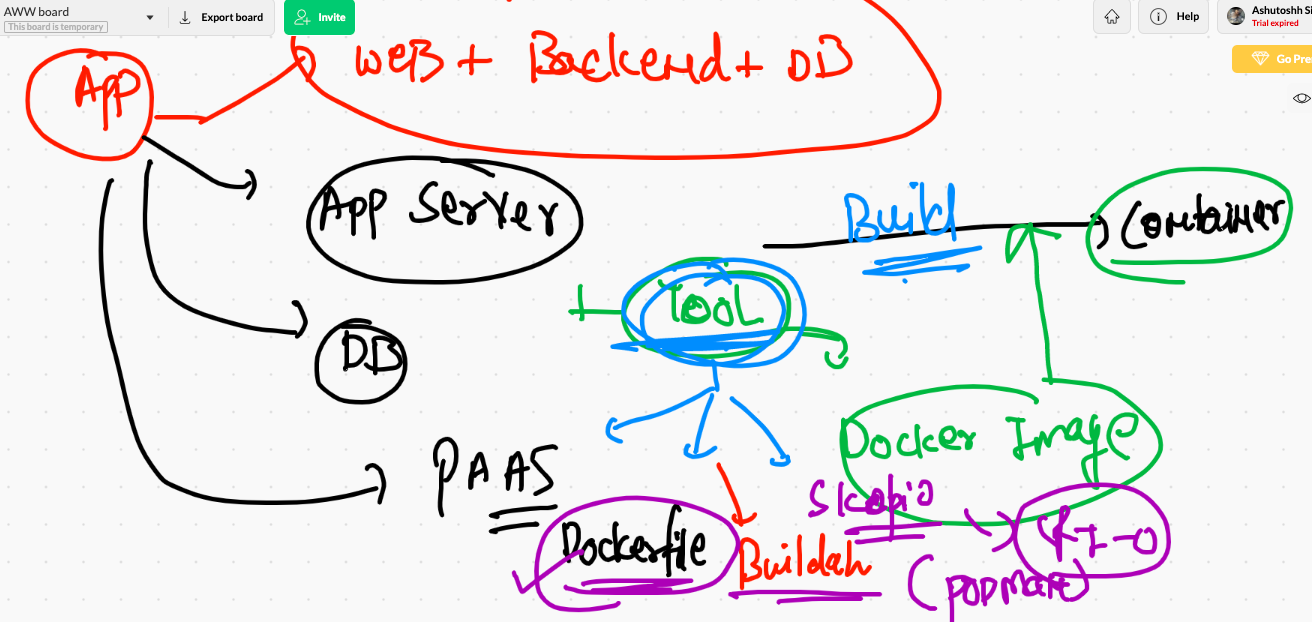 AWW board
This board is temporary
Export board
Invite
Help
Ashutoshh Si
Trial expired
Go Pre
App
WEB + Backend + DB
App Server
Build
Container
TOOL
DB
Docker Image
PAAS
Skopio
CRI-O
Dockerfile
Buildah
(podman)